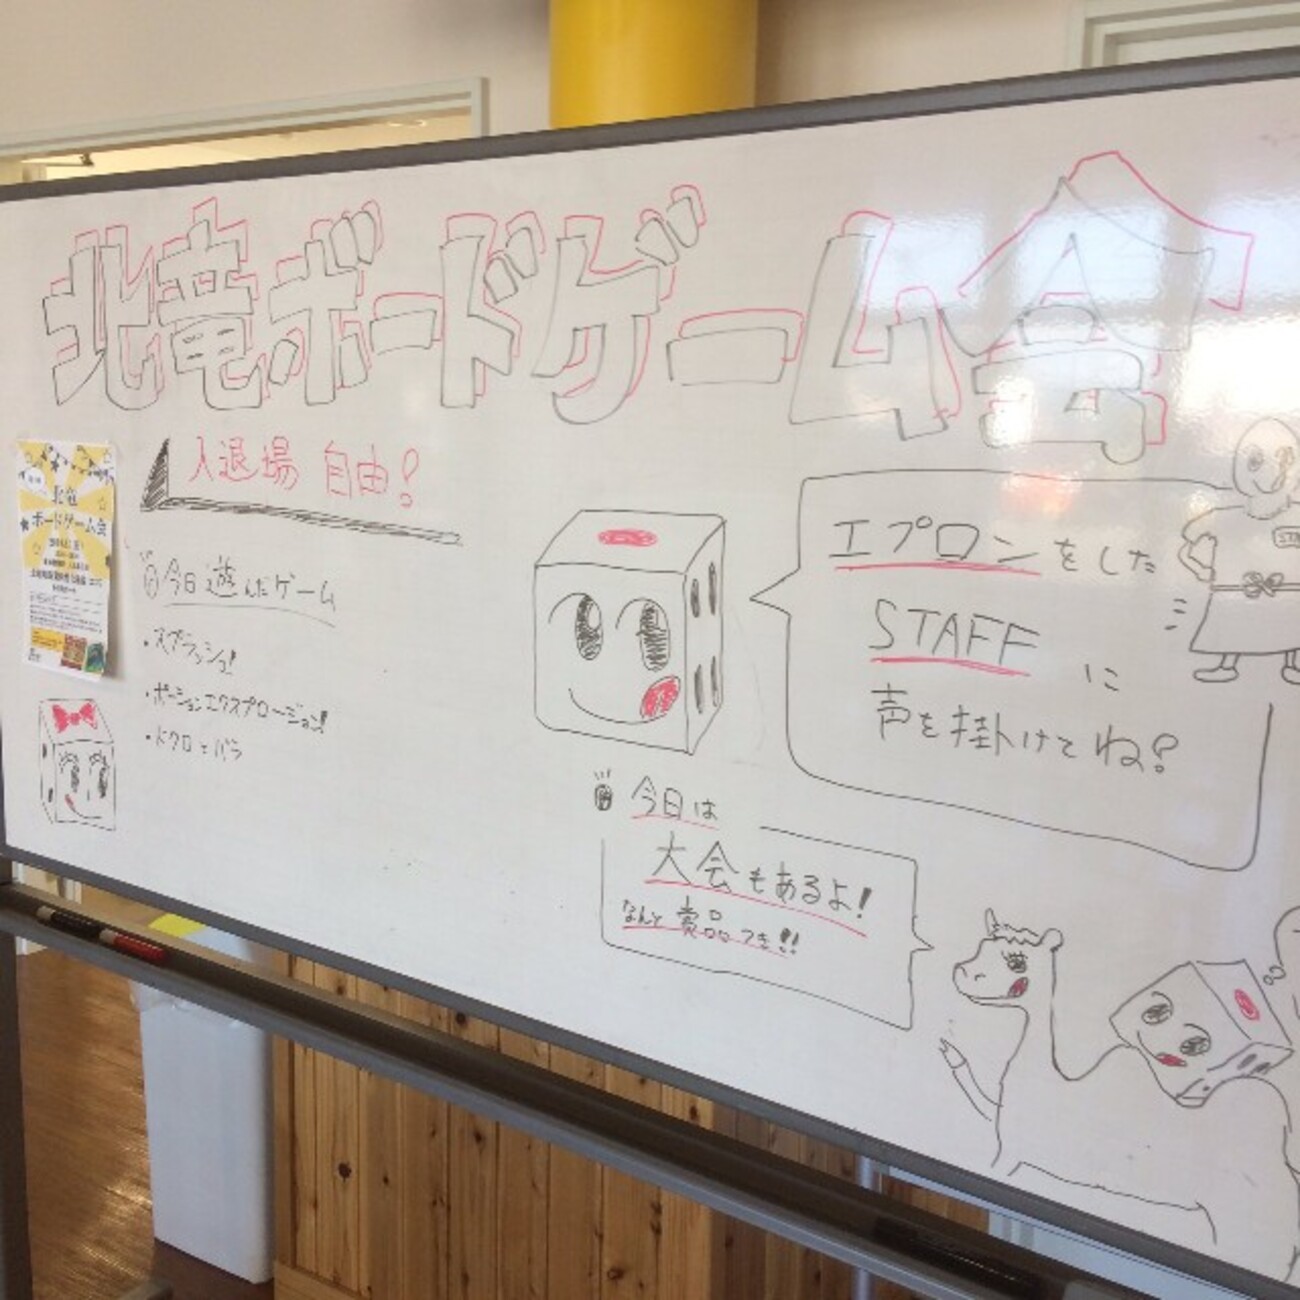 北竜ボードゲーム会
入退場 自由!
今日遊んだゲーム
・スプラッシュ!!
・ポーションエクスプロージョン!!
・ドクロとバラ
エプロンをした
STAFF に
声を掛けてね?
今日は
大会もあるよ!
なんと 賞品つき!!
北竜
ボードゲーム会